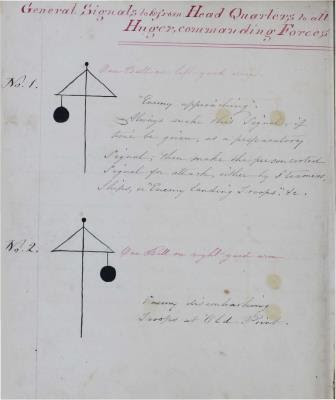 General Signals to & from Head Quarters to all
Huger, commanding Forces
No. 1.
One Ball on left yard arm.
"Enemy approaching".
Always make this Signal, if
time be given, as a preparatory
Signal, then make the preconcerted
Signal for attack, either by Steamers,
Ships, or "Enemy landing Troops" &c.
No. 2.
One Ball on right yard arm
Enemy disembarking
Troops at Old Point.